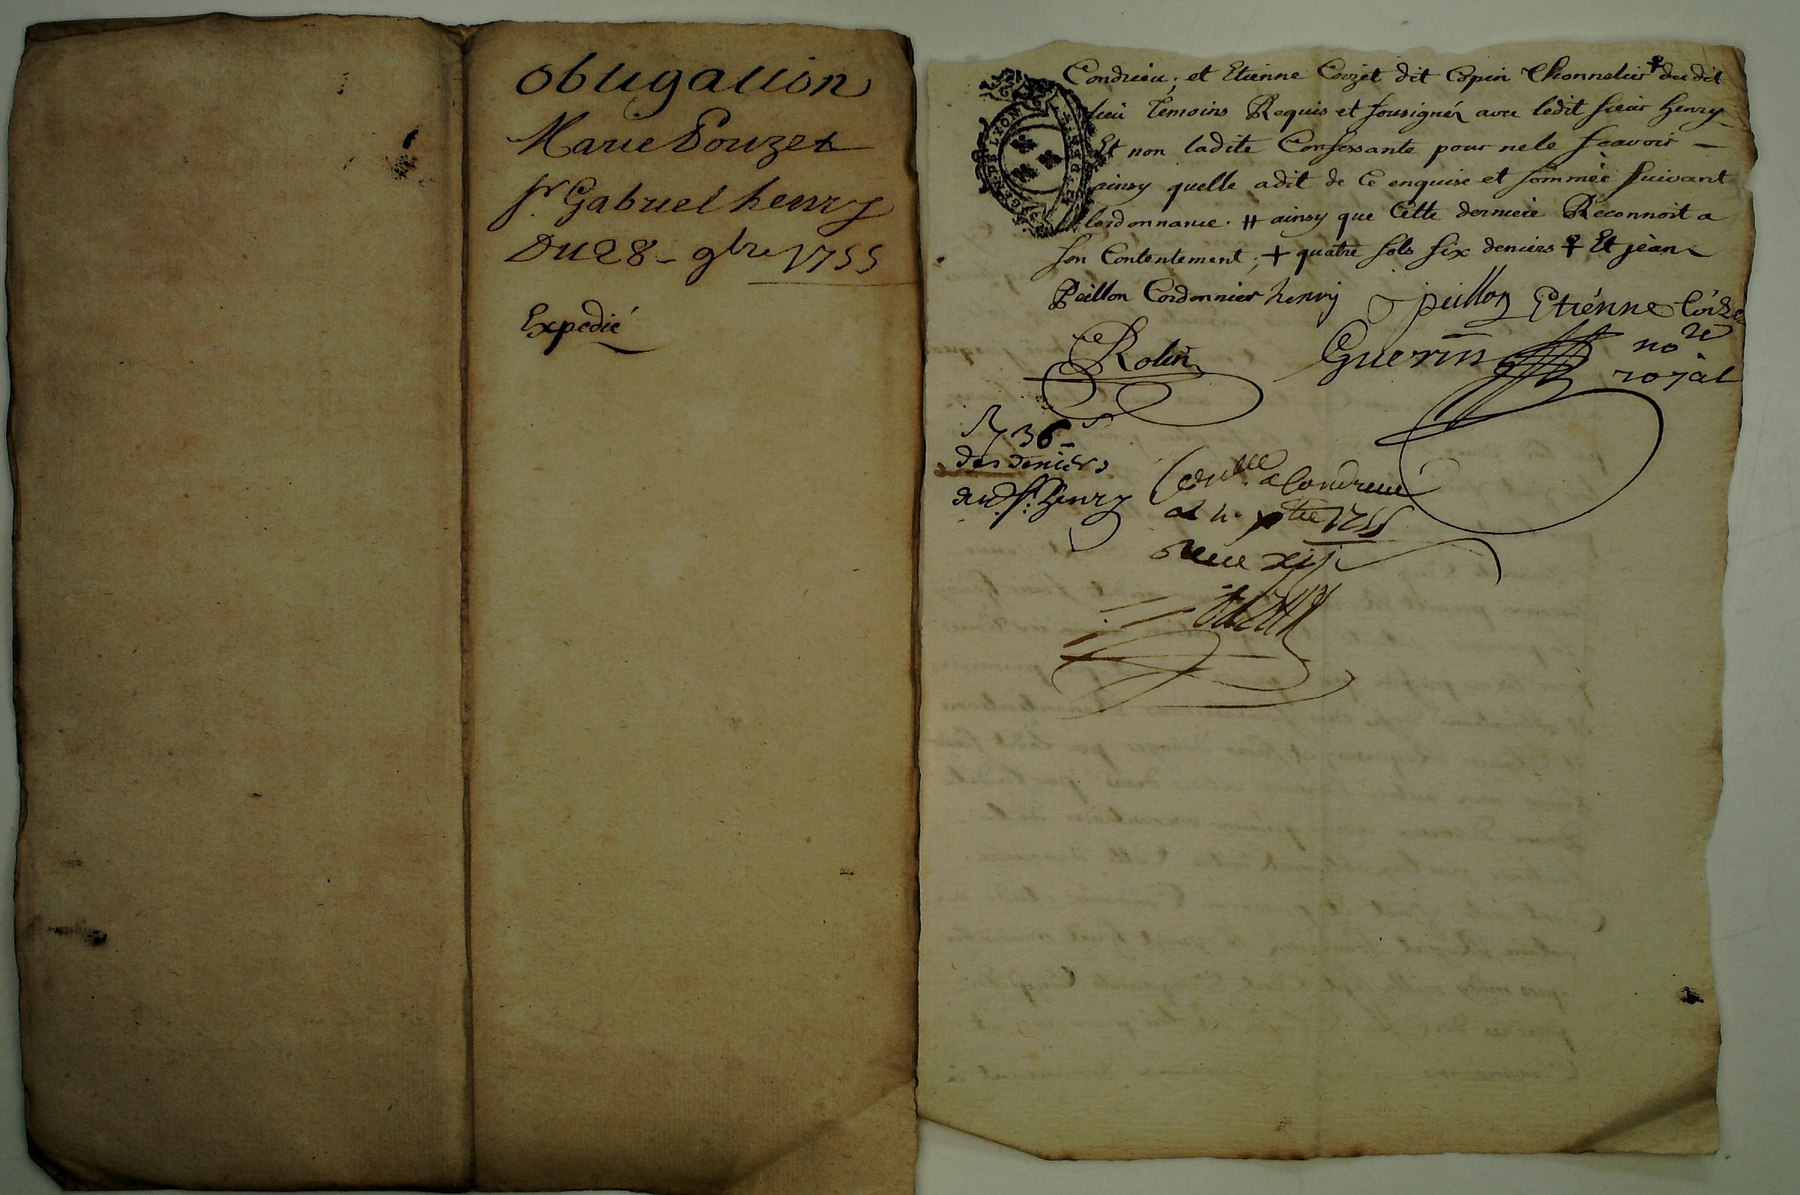 obligation
Marie Pouzet
Sr. Gabriel henry
Du 28 - 9bre 1755
Expedié
Condrieu; et Etienne Cozet dit Copin thonnelier dudit
lieu temoins Requis et sousignéz avec ledit sieur henry
Et non ladite Confessante pour ne le scavoir -
ainsy quelle a dit de ce enquise et sommée suivant
lordonnance. # ainsy que Cette derniere Reconnoit a
son Contentement; + quatre sols six deniers ♀ Et jean
Peillon Cordonnier henry J peillon Etiénne
Robin Guerin nore
royal
36
des deniers
dud. Sr. henry
Con.lle a Condrieu
1755